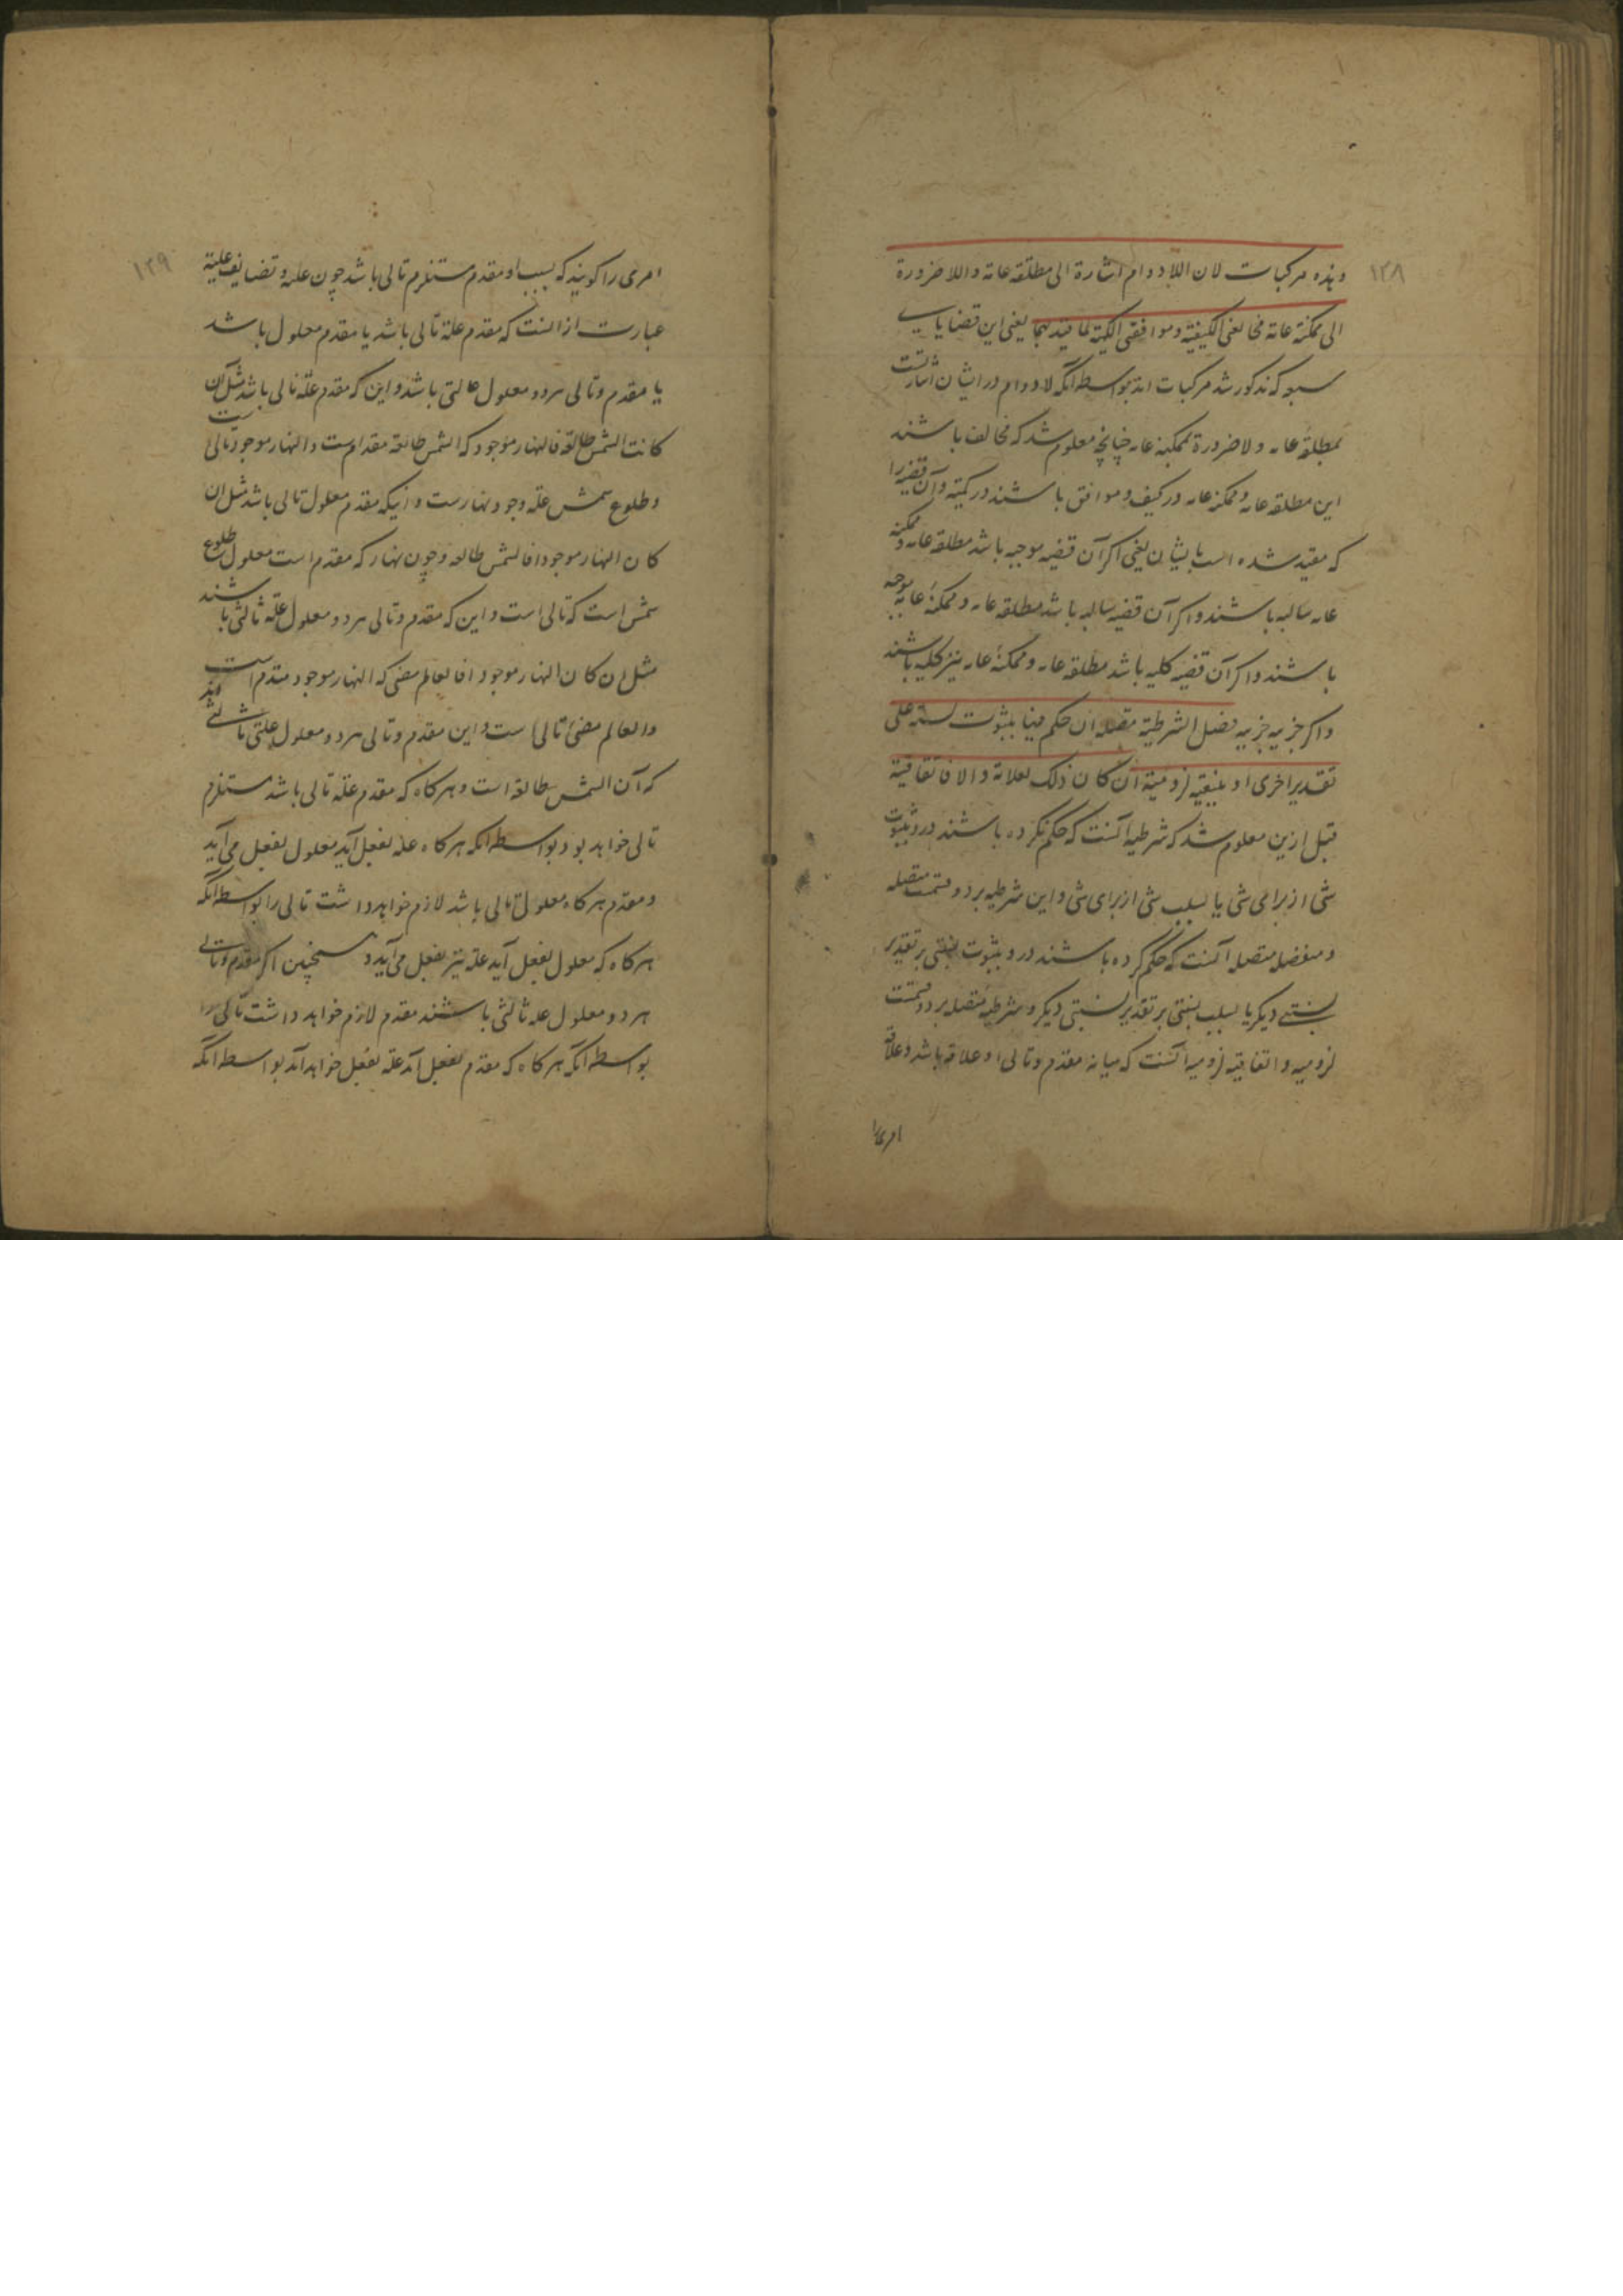 ۱۳۸
وهذه مركبات لان اللادوام اشارة الى مطلقه عامة واللاضرورة
الى ممكنة عامة مخالفتى الكيفية وموافقتى الكمية لما قيد بهما يعنى اين قضاياى
كه مذكور شد مركبات اند بواسطه آنكه لادوام در ايشان اشارتست
بمطلقه عامه ولاضرورة بممكنه عامه چنانچه معلوم شد كه مخالف باشند
اين مطلقه عامه وممكنه عامه در كيف وموافق باشند در كميه وآن قضيه را
كه مقيد شده است بايشان يعنى اكر آن قضيه موجبه باشد مطلقه عامه وممكنه
عامه سالبه باشند واكر آن قضيه سالبه باشد مطلقه عامه وممكنه عامه موجبه
باشند واكر آن قضيه كليه باشد مطلقه عامه وممكنه عامه نيز كليه باشند
واكر جزيه جزيه فصل الشرطية متصله ان حكم فيها بثبوت نسبة على
تقدير اخرى او بنفيها لزومية ان كان ذلك لعلاقة والا فاتفاقية
قبل ازين معلوم شد كه شرطيه آنست كه حكم نكرده باشند درو بثبوت
شى از براى شى يا بسلب شى از براى شى واين شرطيه بر دو قسمست متصله
ومنفصله متصله آنست كه حكم كرده باشند درو بثبوت نسبتى بر تقدير
نسبتى ديكر يا بسلب نسبتى بر تقدير نسبتى ديكر وشرطيه متصله بر دو قسمست
لزوميه واتفاقيه لزوميه آنست كه ميانه مقدم وتالى او علاقه باشد وعلاقه
امرى را
۱۳۹
امرى را كويند كه بسبب او مقدم مستلزم تالى باشد چون عليه وتضايف عليه
عبارت از آنست كه مقدم علة تالى باشد يا مقدم معلول باشد
يا مقدم وتالى هر دو معلول علتى باشد واين كه مقدم علة تالى باشد مثل ان
كانت الشمس طالعة فالنهار موجود كه الشمس طالعة مقدم است والنهار موجود تالى است
وطلوع شمس علة وجود نهارست واينكه مقدم معلول تالى باشد مثل ان
كان النهار موجودا فالشمس طالعه وچون نهار كه مقدم است معلول طلوع
شمس است كه تالى است واين كه مقدم وتالى هر دو معلول علة ثالثى باشند
مثل ان كان النهار موجودا فالعالم مضى كه النهار موجود مقدم است
والعالم مضئ تالى است واين مقدم وتالى هر دو معلول علتى ثالثى اند
كه آن الشمس طالعة است وهر كاه كه مقدم علة تالى باشد مستلزم
تالى خواهد بود بواسطه آنكه هر كاه علة بفعل آيد معلول بفعل مى آيد
ومقدم هر كاه معلول تالى باشد لازم خواهد داشت تالى را بواسطه آنكه
هر كاه كه معلول بفعل آيد علة نيز بفعل مى آيد وهمچنين اكر مقدم وتالى
هر دو معلول علة ثالثى باشند مقدم لازم خواهد داشت تالى را
بواسطه آنكه هر كاه كه مقدم بفعل آمد علة بفعل خواهد آمد بواسطه آنكه